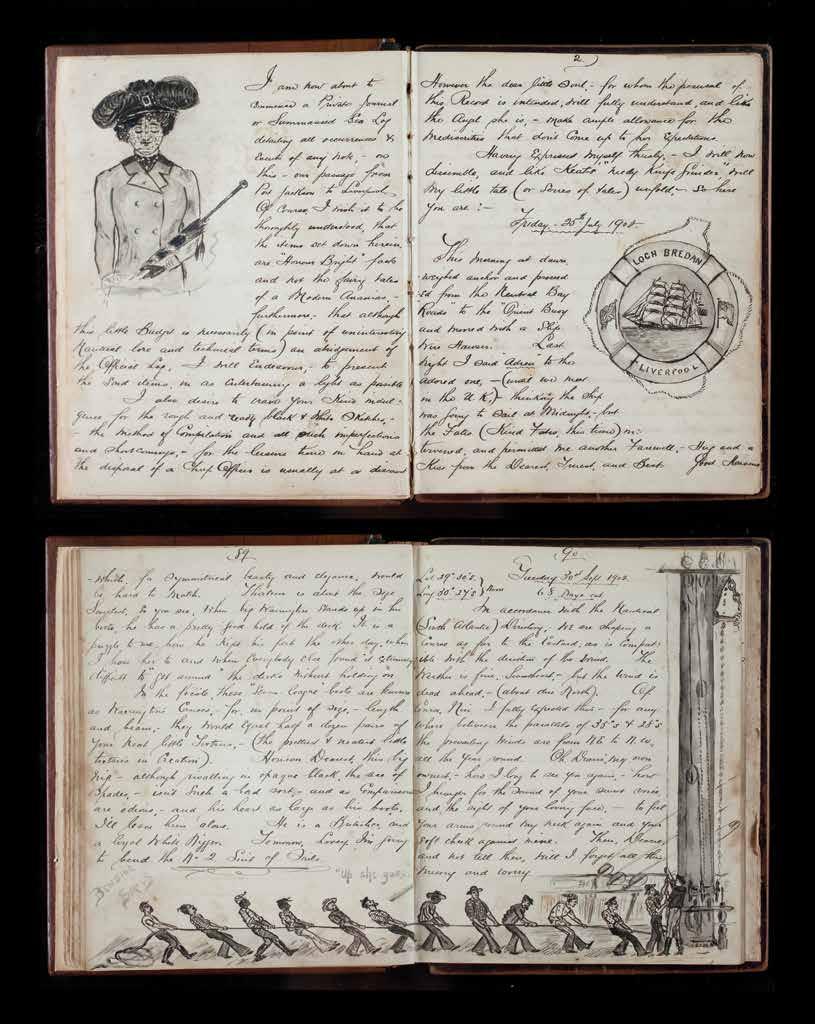 I am now about to
Commence a Private Journal
or Summarised Sea Log
detailing all occurrences &
Events of any note, - on
this - our passage from
Port Jackson to Liverpool.
Of Course, I wish it to be
thoroughly understood, that
the items set down herein,
are "Honour Bright" facts
and not the fairy tales
of a Modern Ananias, -
furthermore, - that although
this little Budget is necessarily (in point of uninteresting
Nautical lore and technical terms) an abridgement of
the Official Log, I will Endeavour, - to present
the said items, in as Entertaining a light as possible
I also desire to crave your Kind indul-
gence for the rough and ready black & white Sketches, -
- the Method of Compilation and all such imperfections
and shortcomings, - for the leisure time in hand at
the disposal of a Chief Officer is usually at a discount
2
However the dear little Soul, - for whom the perusal of
this Record is intended, will fully understand, and like
the Angel she is, - make ample allowance for the
Mediocrities that don't Come up to her Expectations.
Having Expressed Myself thusly, - I will now
and like "needy Knife Grinder" will
My little tale (or Series of tales) unfold. - So here
You are : -
Friday - 25th July 1902.
This Morning at dawn,
weighed anchor and proceed
-ed from the Neutral Bay
Roads" to the "Quarantine Buoy
and moored with a Slip
Wire Hawser. Last
Night I said "Adieu" to the
adored one, - (until we meet
in the U.K.) - thinking the Ship
was going to Sail at Midnight, - but
the Fates (Kind Fates, this time) in-
tervened, and permitted me another Farewell, - Hug and a
Kiss from the Dearest, Truest, and Best
LOCH BREDAN
LIVERPOOL
89
- which, for Symmetrical beauty and elegance, would
be hard to Match. Thirteen is about the size
So you see, when big Warrington Stands up in his
boots, he has a pretty good hold of the deck. It is a
puzzle to me, how he Kept his feet the other day, when
I hove her to and when Everybody else found it Extremely
difficult to "get around" the decks without holding on.
In the fo'c'sle, these "Seven league boots are known
as Warrington's Canoes, - for in point of size, - length
and beam, they would Equal half a dozen pairs of
Your Neat little Footwear, - (the prettiest & neatest little
in Creation). However Dearest, this big
- although rivalling in opaque black, the ace of
Spades, - isn't Such a bad sort, - and as Comparisons
are odious, - and his heart as large as his boots,
I'll leave him alone. He is a Britisher, and
a Loyal White Nigger. Tomorrow, Lovey, I'm going
to bend the No 2 Suit of Sails.
Bending
Sails
"Up she goes"
90
Lat 29° 30' S.
Long 30° 27' W
Noon
Tuesday 30th Sept 1902
68 Days out
In accordance with the Nautical
(South Atlantic) Directory, We are Shaping a
Course as far to the Eastward, as is Compat-
ible with the direction of the Wind. The
Weather is fine, Sweetheart, - but the wind is
dead ahead, - (about due North). Of
Course, I fully Expected this - for any
where between the parallels of 35°S & 25°S
the prevailing winds are from N.E. to N.W.
all the Year round. Oh Dearie, My own
ownest, - how I long to see you again, - how
I hunger for the Sound of your voice
and the sight of your loving face, - to feel
Your arms round My Neck again and your
soft cheek against mine. Then, Dearie,
and not till then, will I forget all this
and worry.